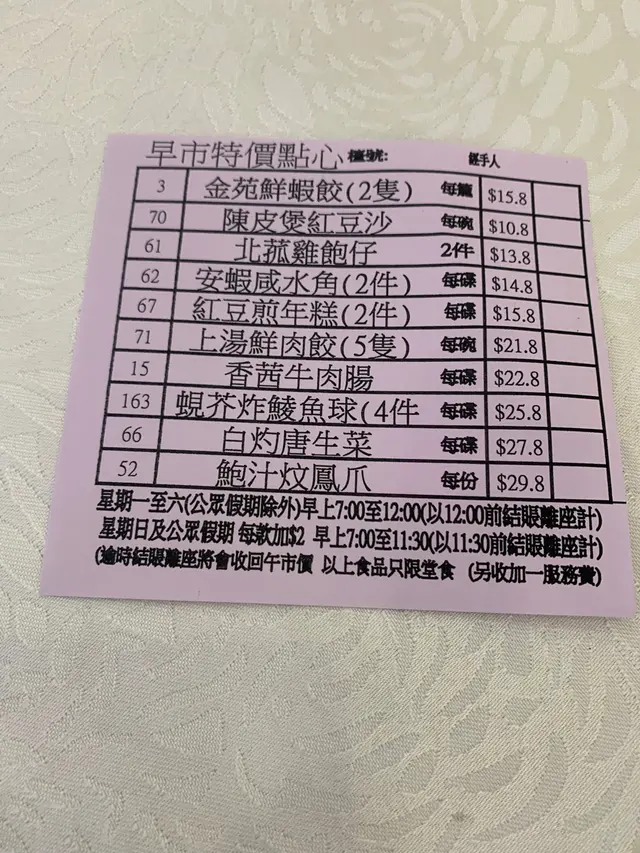 早市特價點心 檯號: 經手人
3 金苑鮮蝦餃(2隻) 每籠 $15.8
70 陳皮煲紅豆沙 每碗 $10.8
61 北菰雞飽仔 2件 $13.8
62 安蝦咸水角(2件) 每碟 $14.8
67 紅豆煎年糕(2件) 每碟 $15.8
71 上湯鮮肉餃(5隻) 每碗 $21.8
15 香茜牛肉腸 每碟 $22.8
163 蜆芥炸鯪魚球(4件 每碟 $25.8
66 白灼唐生菜 每碟 $27.8
52 鮑汁炆鳳爪 每份 $29.8
星期一至六(公眾假期除外)早上7:00至12:00(以12:00前結賬離座計)
星期日及公眾假期 每款加$2 早上7:00至11:30(以11:30前結賬離座計)
(逾時結賬離座將會收回午市價 以上食品只限堂食 (另收加一服務費)